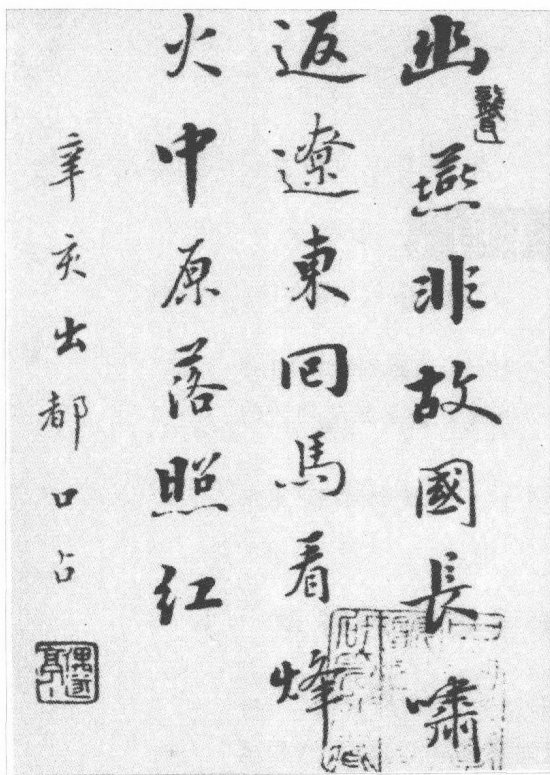 幽燕非故國長嘯
返遼東回馬看烽
火中原落照紅
辛亥出都口占
偶遂亭